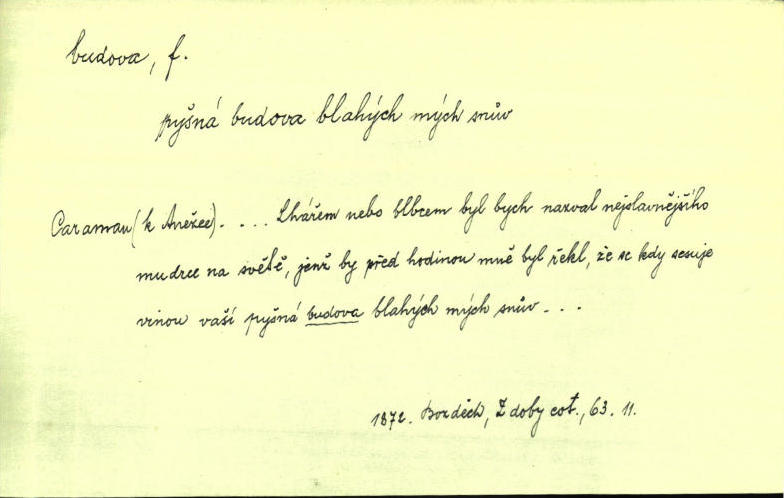 budova, f.
pyšná budova blahých mých snův
Caraman (k Anežce). . . . Lhářem nebo blbcem byl bych nazval nejslavnějšího
mudrce na světě, jenž by před hodinou mně byl řekl, že se kdy sesuje
vinou vaší pyšná budova blahých mých snův . . .
1872. Bozděch, Z doby cot., 63. 11.